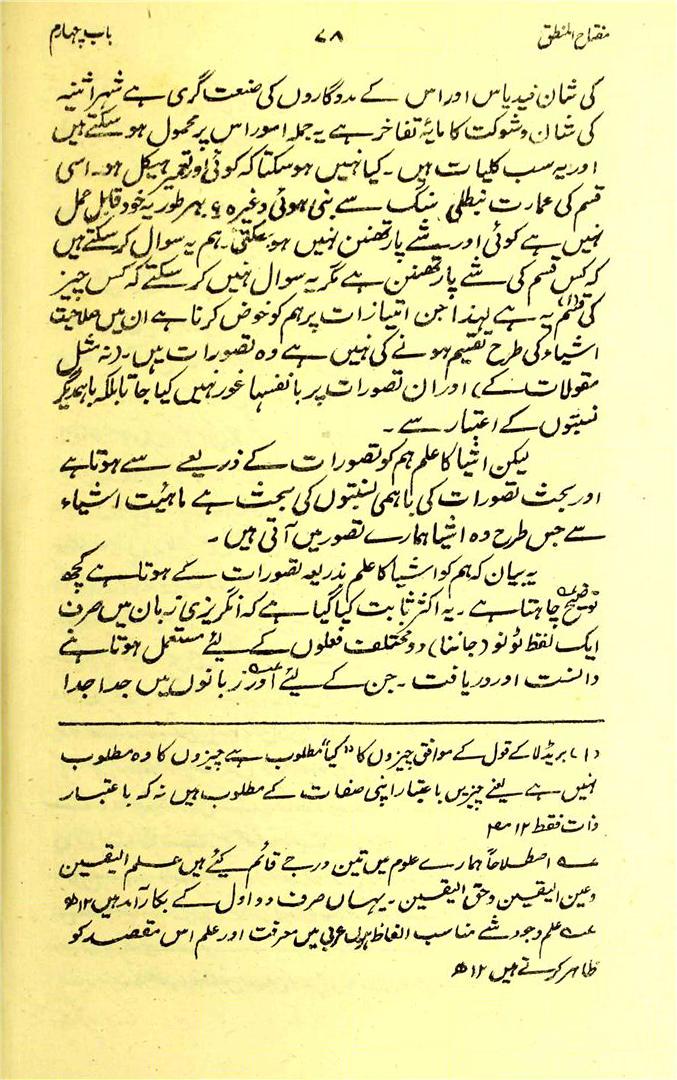 مفتاح المنطق ۷۸ باب چہارم
کی شان فیدیاس اور اس کے مددگاروں کی صنعت گری ہے شہر اثنیہ
کی شان و شوکت کا مایۂ تفاخر ہے یہ جملہ امور اس پر محمول ہو سکتے ہیں
اور یہ سب کلیات ہیں۔ کیا نہیں ہو سکتا کہ کوئی اور تعمیر ہیکل ہو۔ اسی
قسم کی عمارت نبطلی سنگ سے بنی ہوئی وغیرہ ؟ بہر طور یہ خود قابل حمل
نہیں ہے کوئی اور شے پارتھنن نہیں ہو سکتی۔ ہم یہ سوال کر سکتے ہیں
کہ کس قسم کی شے پارتھنن ہے مگر یہ سوال نہیں کر سکتے کہ کس چیز
کی قسم یہ ہے (۱) لہذا جن امتیازات پر ہم کو خوض کرنا ہے ان میں صلاحیت
اشیاء کی طرح تقسیم ہونے کی نہیں ہے وہ تصورات ہیں۔ (نہ مثل
مقولات کے) اور ان تصورات پر بانفسہا غور نہیں کیا جاتا بلکہ باہمدیگر
نسبتوں کے اعتبار سے۔
لیکن اشیا کا علم ہم کو تصورات کے ذریعے سے ہوتا ہے
اور بحث تصورات کی باہمی نسبتوں کی بحث ہے ماہیت اشیاء
سے جس طرح وہ اشیا ہمارے تصور میں آتی ہیں۔
یہ بیان کہ ہم کو اشیا کا علم بذریعہ تصورات کے ہوتا ہے کچھ
توضیح چاہتا ہے۔ یہ اکثر ثابت کیا گیا ہے کہ انگریزی زبان میں صرف
ایک لفظ ٹو نو (جاننا) دو مختلف فعلوں کے لیئے مستعمل ہوتا ہے
دانست اور دریافت۔ جن کے لیئے اور زبانوں میں جدا جدا
(۱) بریڈلا کے قول کے موافق چیزوں کا "کیا" مطلوب ہے چیزوں کا وہ مطلوب
نہیں ہے یعنے چیزیں باعتبار اپنی صفات کے مطلوب ہیں نہ کہ باعتبار
ذات فقط ۱۲ م
عہ اصطلاحاً ہمارے علوم میں تین درجے قائم کیئے ہیں علم الیقین
وعین الیقین وحق الیقین۔ یہاں صرف دو اول کے بکار آمد ہیں ۱۲ ھ
عہ علم وجود شے مناسب الفاظ ہوں عربی میں معرفت اور علم اس مقصد کو
ظاہر کرتے ہیں ۱۲ ھ